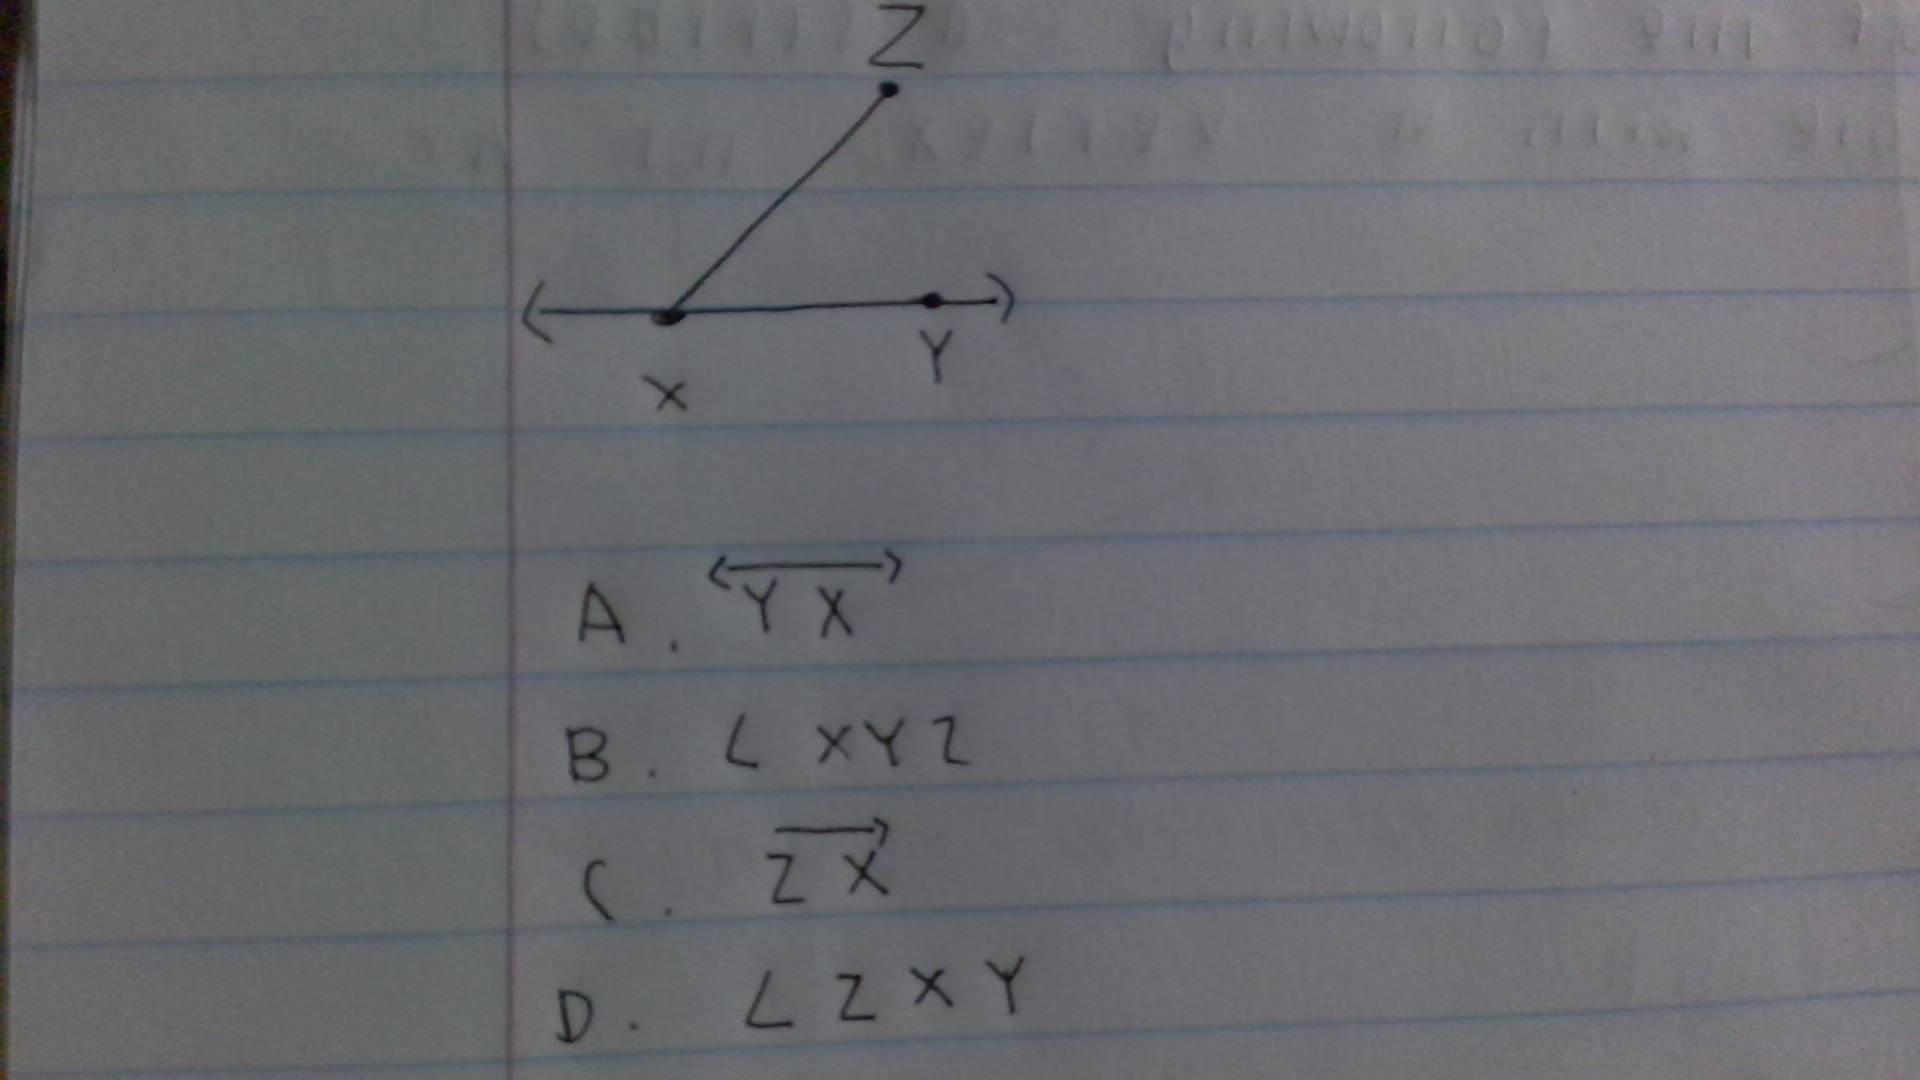 Z
X
Y
A. YX
B. ∠ XYZ
C. ZX
D. ∠ ZXY